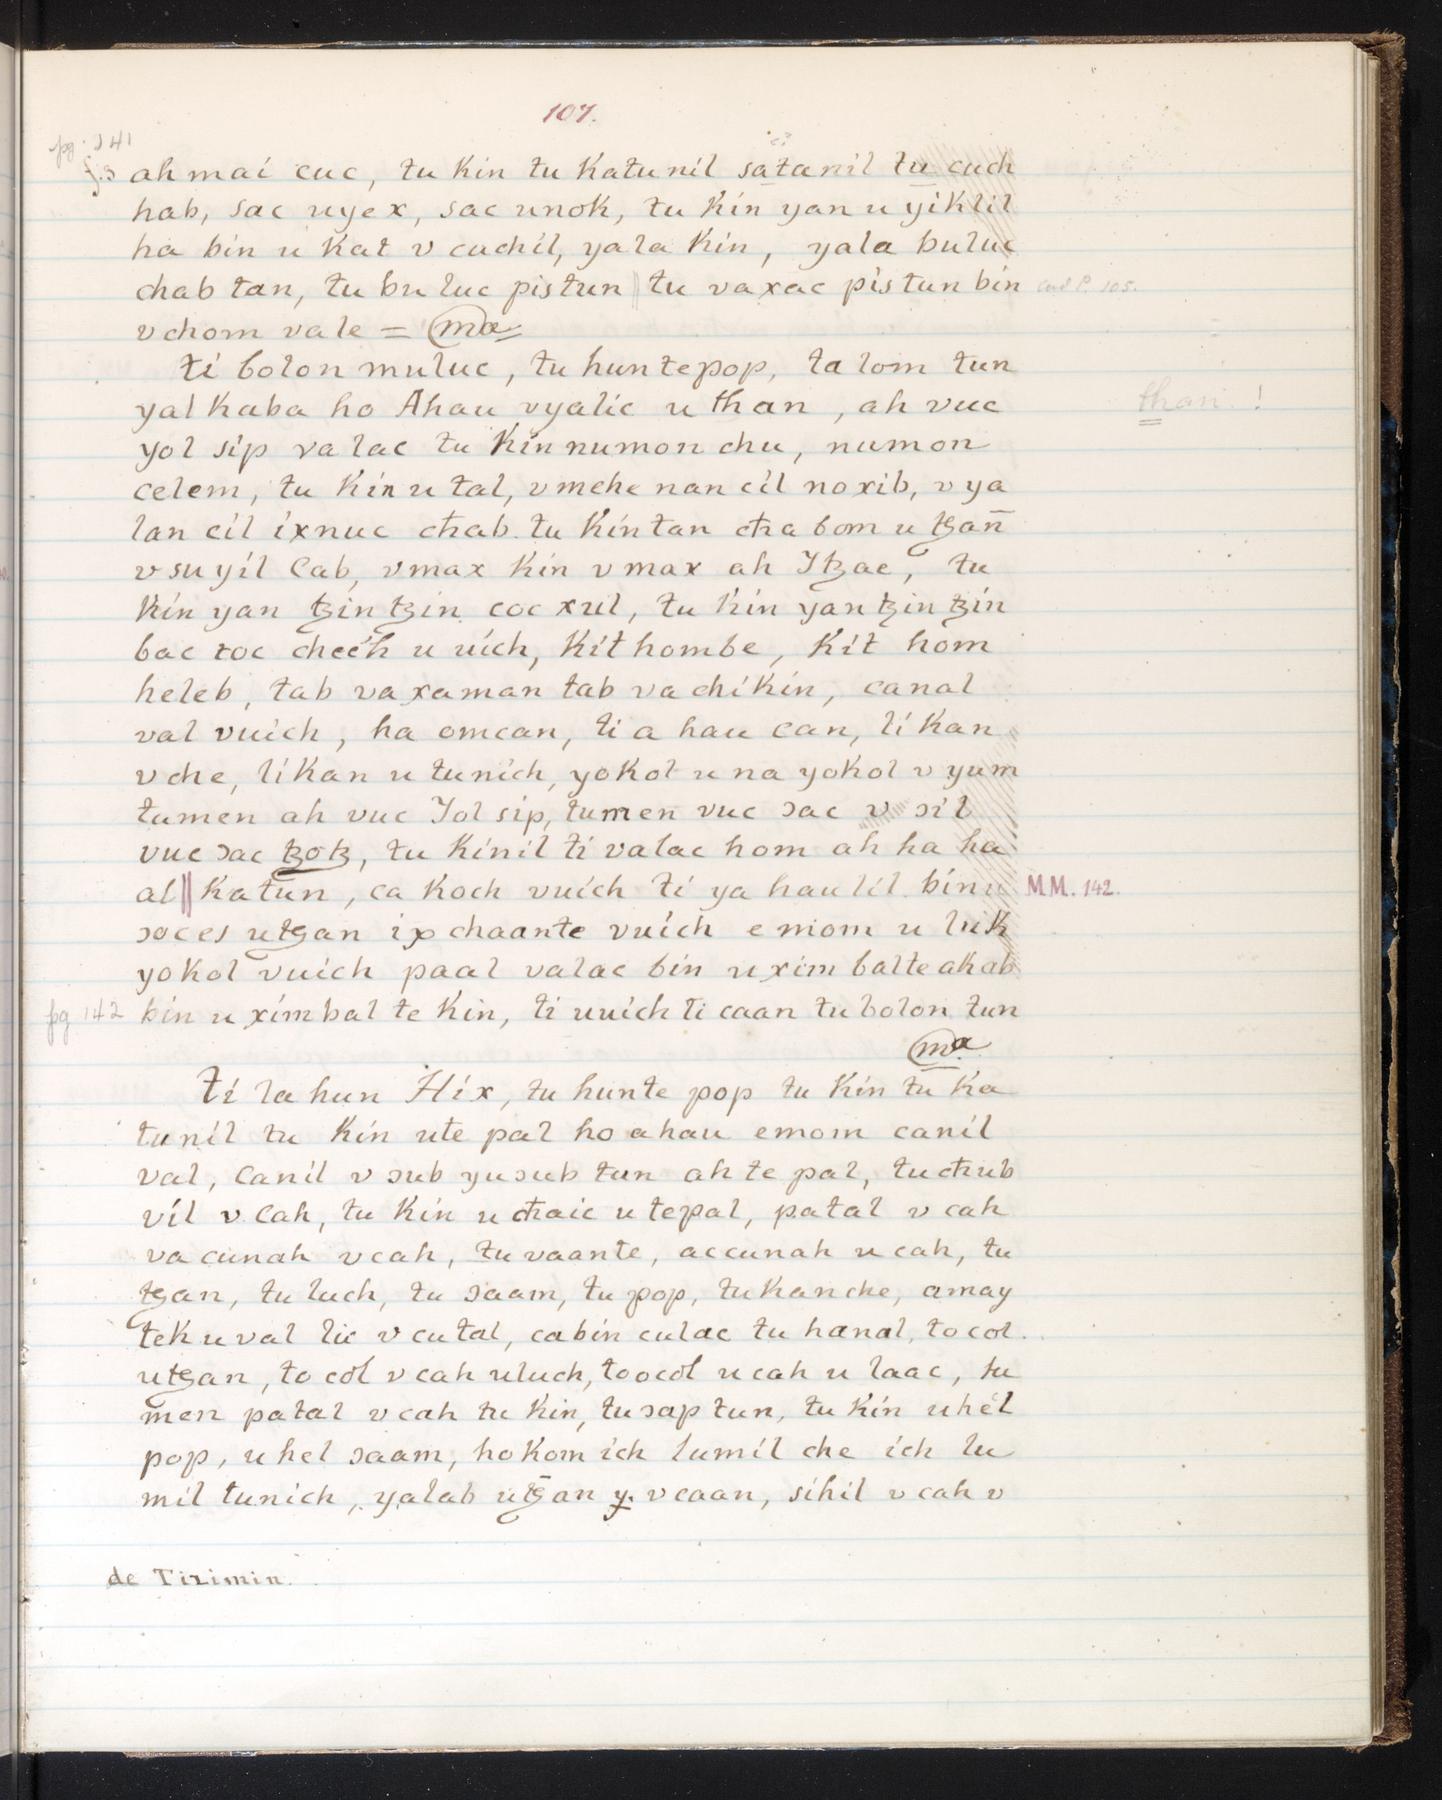 107.
pg. 141
ah mai cuc, tu Kin tu Katunil satanil tu cuch
hab, sac uyex, sac unok, tu Kin yan u yiklil
ha bin u Kat v cuchil, yala Kin, yala buluc
chab tan, tu buluc pistun || tu vaxac pistun bin
vchom vale = ma
ti bolon muluc, tu huntepop, ta lom tun
yal Kaba ho Ahau vyalic u than, ah vuc
than !
yol sip valac tu Kin numon chu, numon
celem, tu Kin u tal, vmehe nan cil noxib, v ya
lan cil ixnuc cħab. tu Kin tan cħa bom u ꜩan
v su yil Cab, vmax Kin v max ah Yꜩae, tu
Kin yan ꜩin ꜩin coc xul, tu Kin yan ꜩin ꜩin
bac toc cheeh u uich, Kit hombe, Kit hom
heleb, tab va xaman tab va chiKin, canal
val vuich, ha omcan, ti a hau can, li Kan
v che, li Kan u tunich, yoKol u na yoKol v yum
tumen ah vuc Yol sip, tumen vuc ɔac v ɔil
vuc ɔac ꜩoꜩ, tu Kinil ti valac hom ah ha ha
al || Katun, ca Koch vuich ti ya haulil binu
M.M. 142.
ɔoces uꜩan ix chaante vuich emom u luk
yoKol vuich paal valac bin u xim balte akab
pg 142
bin u ximbal te Kin, ti uuich ti caan tu bolon tun
ma
Ti lahun Hix, tu hunte pop tu Kin tu Ka
tunil tu Kin ute pal ho ahau emom canil
val, Canil v ɔub yuɔub tun ah te pal, tu cħub
vil v Cah, tu Kin u cħaic u tepal, patal v cah
va cunah v cah, tu vaante, accunah u cah, tu
ꜩan, tu luch, tu ɔaam, tu pop, tu Kanche, amay
tek u val lic v cutal, cabin culac tu hanal, to col
uꜩan, to col v cah uluch, toocol u cah u laac, tu
men patal v cah tu Kin, tu ɔap tun, tu Kin u hel
pop, u hel ɔaam, hoKom ich lumil che ich lu
mil tunich, yalab uꜩan y. v caan, sihil v cah v
de Tizimin.